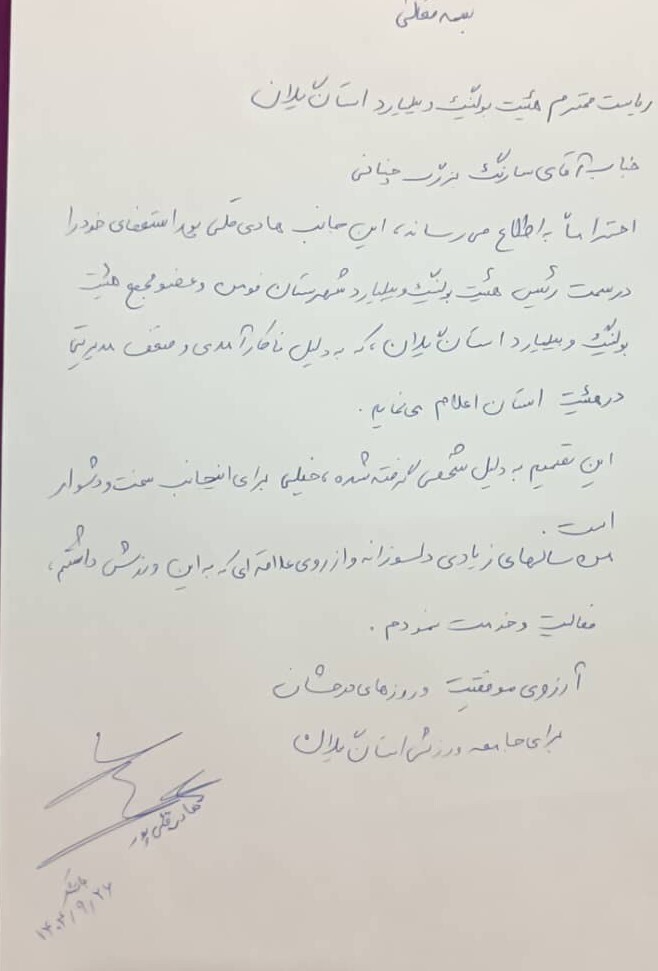 بسمه تعالی
ریاست محترم هئیت بولینگ و بیلیارد استان
جناب آقای
احتراماً به اطلاع می رساند، این جانب هادی قلی پور استعفای خود را
در سمت رئیس هئیت بولینگ و بیلیارد شهرستان و عضو مجمع هئیت
بولینگ و بیلیارد استان ، که به دلیل ناکارآمدی و ضعف مدیریتی
در هئیت استان اعلام می نمایم .
این تصمیم به دلیل شخصی گرفته شده ، خیلی برای اینجانب سخت و دشوار
است .
من سالهای زیادی دلسوزانه و از روی علاقه ای که به این ورزش داشتم ،
فعالیت و خدمت نمودم .
آرزوی موفقیت و روزهای درخشان
برای جامعه ورزش استان
هادی قلی پور
۱۴۰۳/۹/۲۶